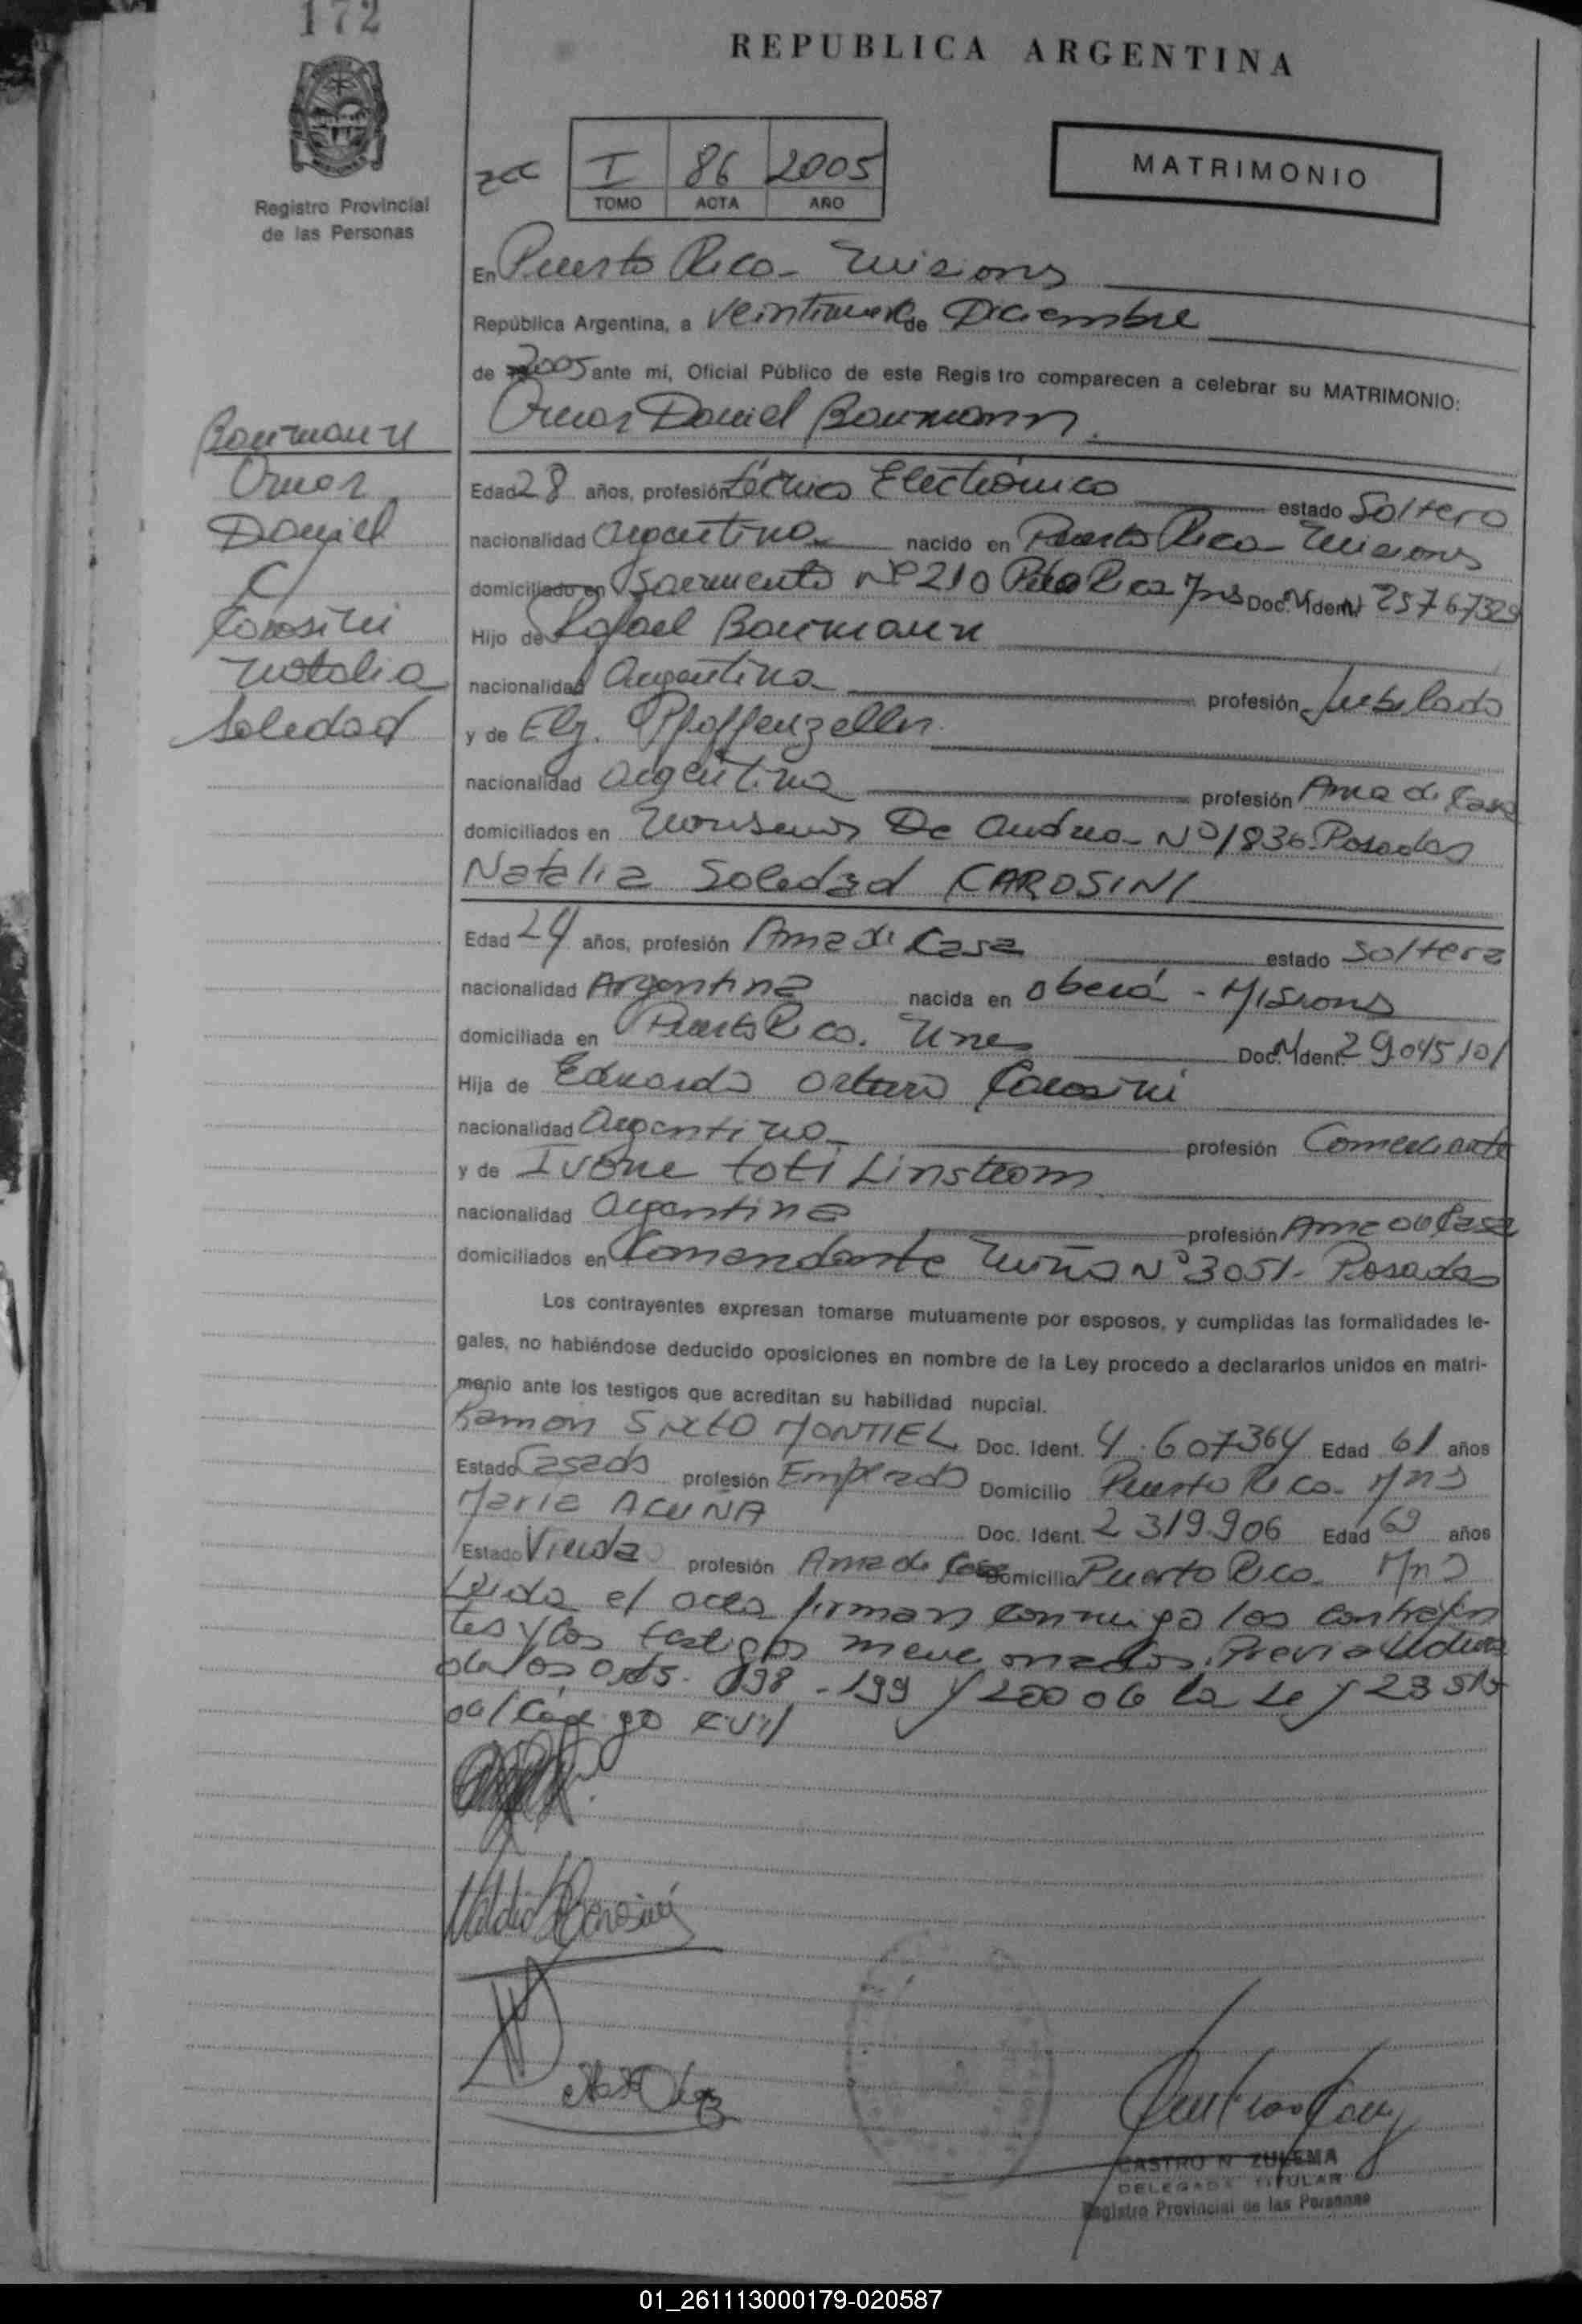 172
REPUBLICA ARGENTINA
Registro Provincial
de las Personas
I 86 2005
TOMO ACTA AÑO
MATRIMONIO
En Puerto Rico - Misiones
República Argentina, a veintinueve de Diciembre
de 2005 ante mí, Oficial Público de este Registro comparecen a celebrar su MATRIMONIO:
Omar Daniel Baumann.
Baumann
Omar
Daniel
C/
Carosini
Natalia
Soledad
Edad 28 años, profesión técnico Electrónico estado Soltero
nacionalidad Argentina nacido en Puerto Rico - Misiones
domiciliado en Sarmiento Nº 210 Pto Rico Mns Doc. Ident. 25767329
Hijo de Rafael Baumann
nacionalidad Argentina profesión Jubilado
y de Elz. Pfaffenzeller
nacionalidad Argentina profesión Ama de Casa
domiciliados en Monseñor De Andrea - Nº 1836 Posadas
Natalia Soledad CAROSINI
Edad 24 años, profesión Ama de Casa estado Soltera
nacionalidad Argentina nacida en Oberá - Misiones
domiciliada en Puerto Rico. Mnes Doc. Ident. 29045101
Hija de Eduardo Arturo Carosini
nacionalidad Argentino profesión Comerciante
y de Ivone toti Linstrom
nacionalidad Argentina profesión Ama de Casa
domiciliados en Comandante Miño Nº 3051 - Posadas
Los contrayentes expresan tomarse mutuamente por esposos, y cumplidas las formalidades le-
gales, no habiéndose deducido oposiciones en nombre de la Ley procedo a declararlos unidos en matri-
monio ante los testigos que acreditan su habilidad nupcial.
Ramon Sixto MONTIEL Doc. Ident. 4.607364 Edad 61 años
Estado Casado profesión Empleado Domicilio Puerto Rico - Mns
Maria ACUÑA Doc. Ident. 2319.906 Edad 69 años
Estado Viuda profesión Ama de Casa Domicilio Puerto Rico - Mns
Leida el acta firman conmigo los contrayen
tes y los testigos mencionados. Previa lectura
de los arts. 198 - 199 y 200 de la Ley 23515
del Código Civil
CASTRO N ZULEMA
DELEGADA TITULAR
Registro Provincial de las Personas
01_261113000179-020587